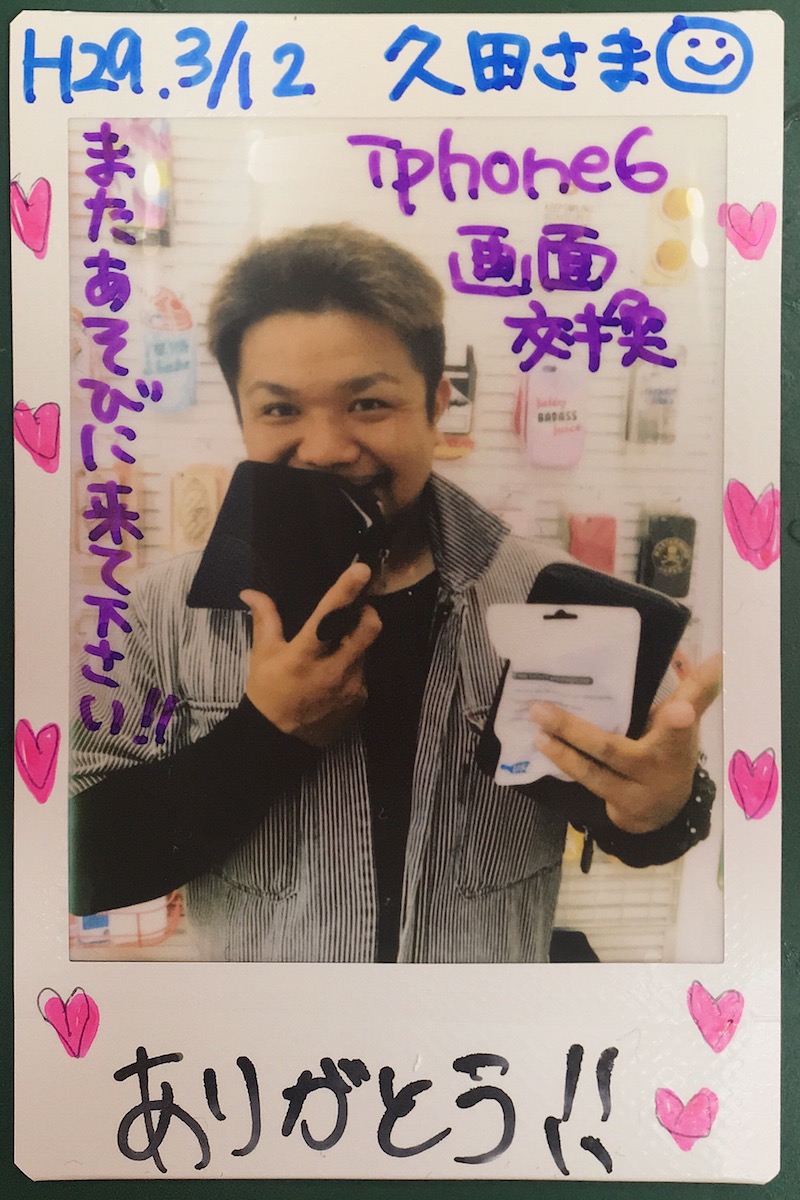 H29.3/12 久田さま
iphone6
画面
交換
またあそびに来て下さい!!
BADASS
ありがとう!!